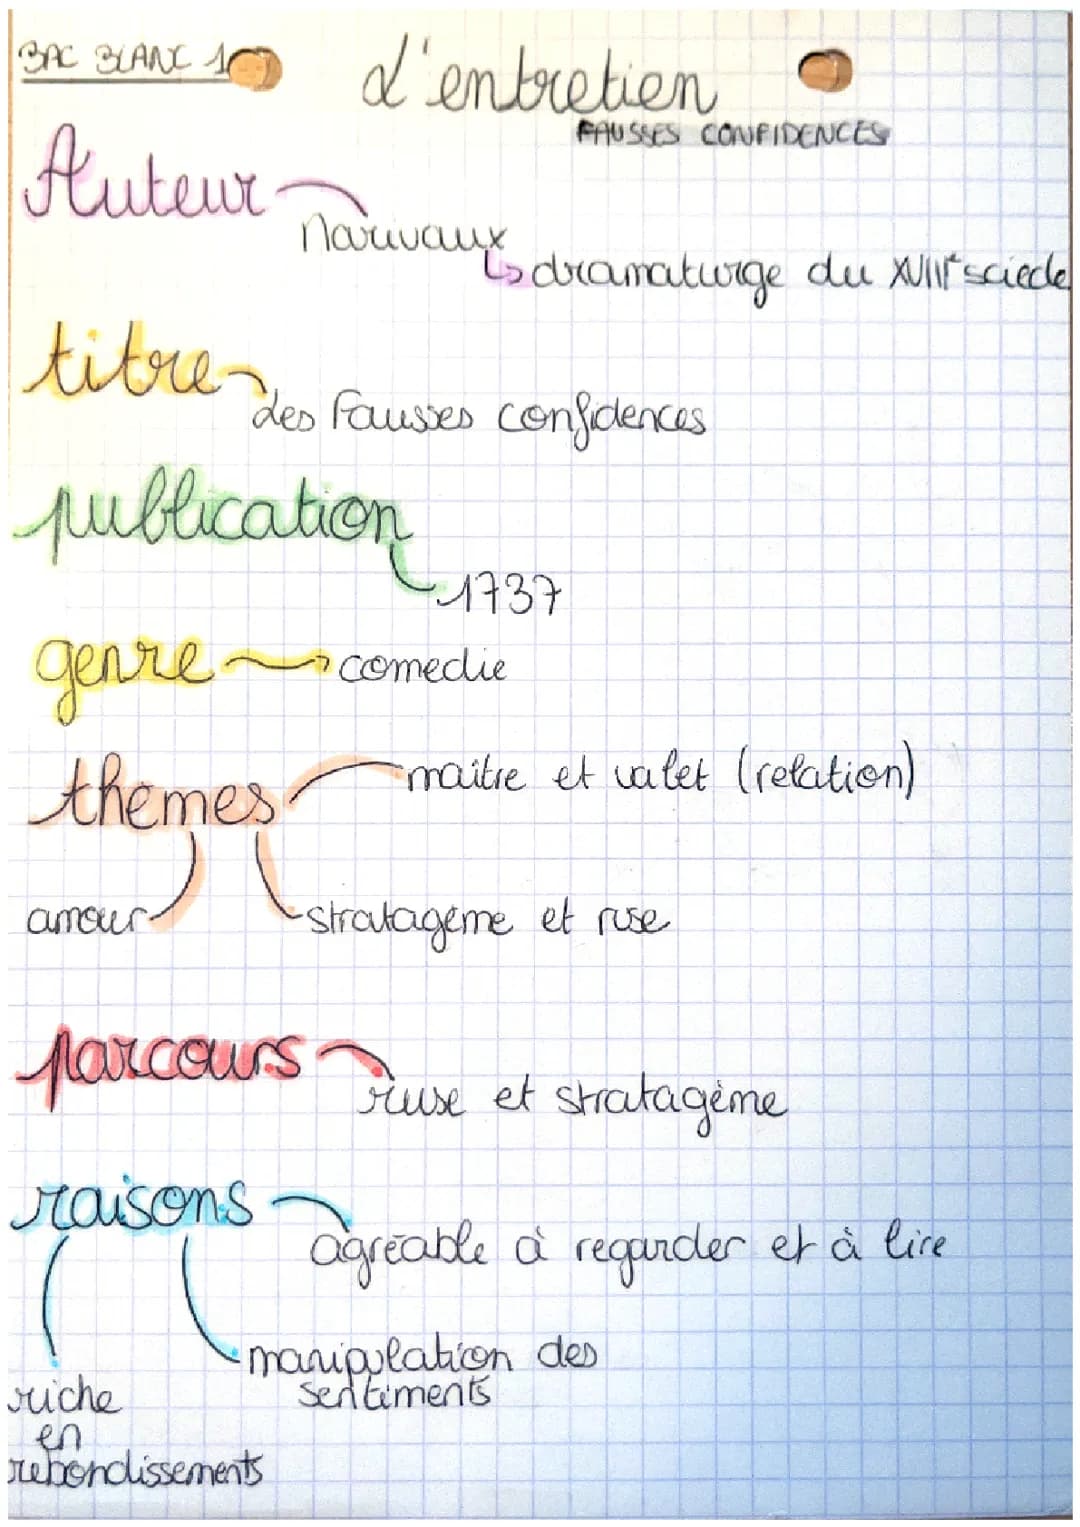 BAC BLANC 1
L'entretien
FAUSSES CONFIDENCES
Auteur
Marivaux
↳ dramaturge du XVIIIe sciecle
titre
Les Fausses confidences
publication
1737
genre → comedie
thèmes
maitre et valet (relation)
amour
stratagème et ruse
parcours
ruse et stratagème
raisons
agréable à regarder et à lire
manipulation des
sentiments
riche
en
rebondissements